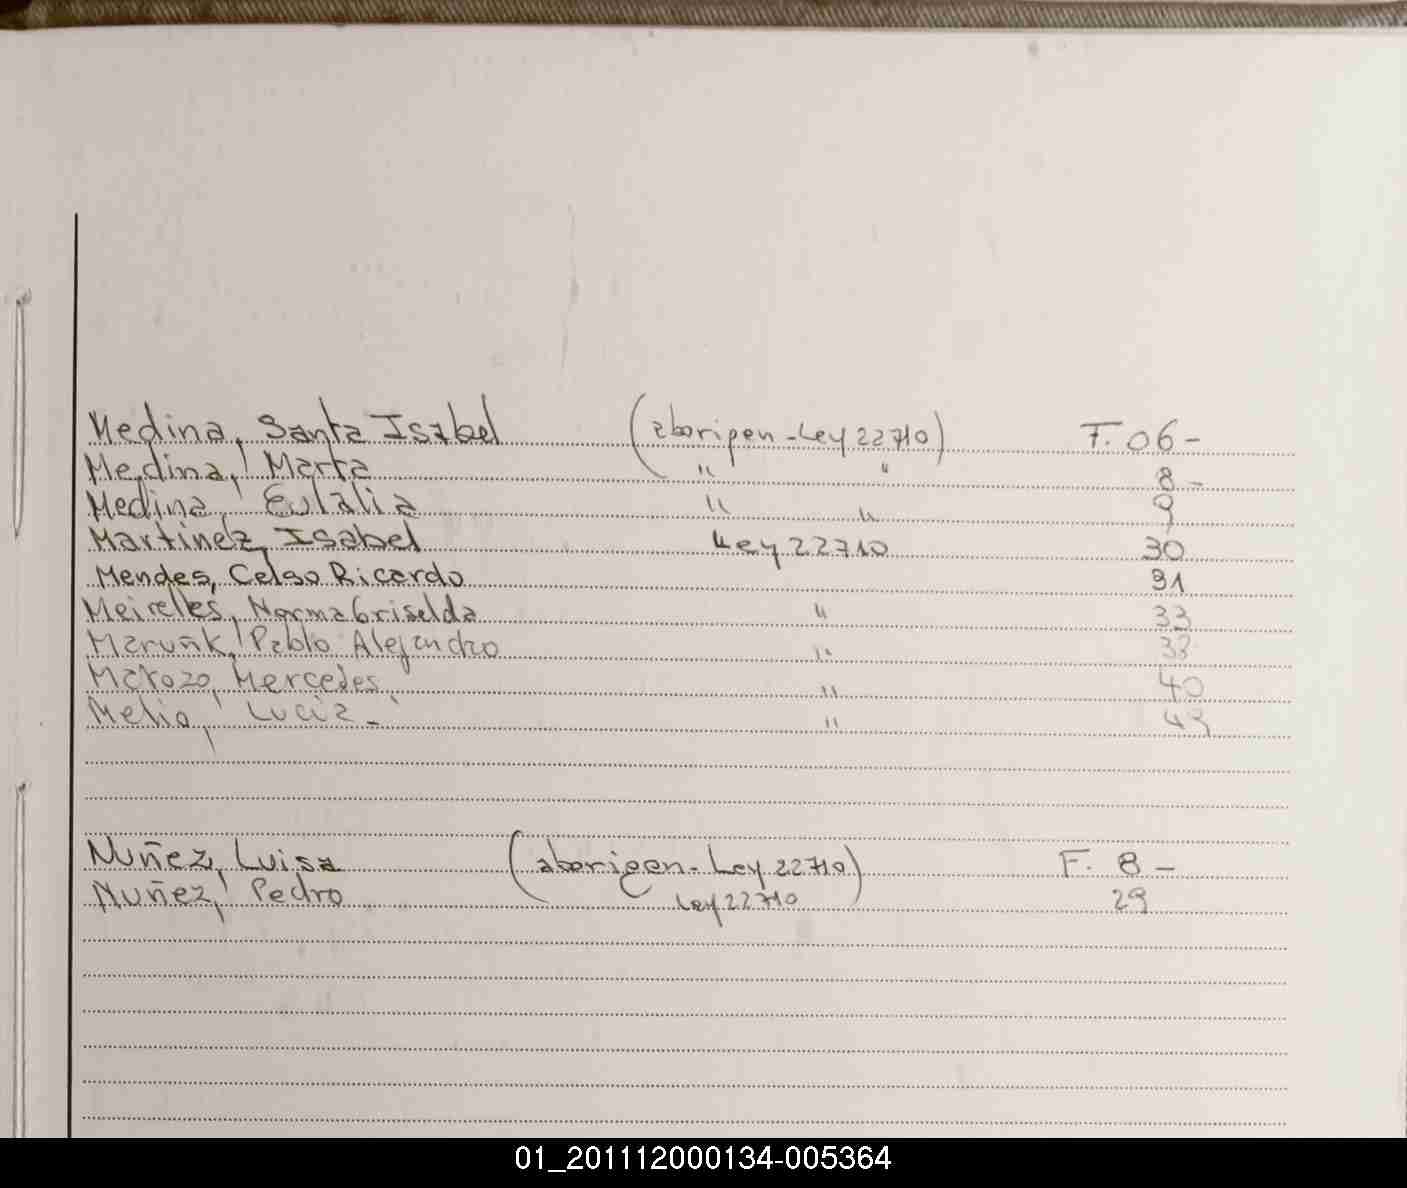 Medina, Santa Isabel (aborigen - Ley 22710) F. 06 -
Medina, Marta " " 8 -
Medina, Eulalia " " 9
Martinez, Isabel Ley 22710 30
Mendes, Celso Ricardo 31
Meirelles, Norma Griselda " 33
Maruñk, Pablo Alejandro " 38
Marozo, Mercedes " 40
Melio, Lucia - " 43
Nuñez, Luisa (aborigen - Ley 22710) F. 8 -
Nuñez, Pedro Ley 22710 29
01_201112000134-005364